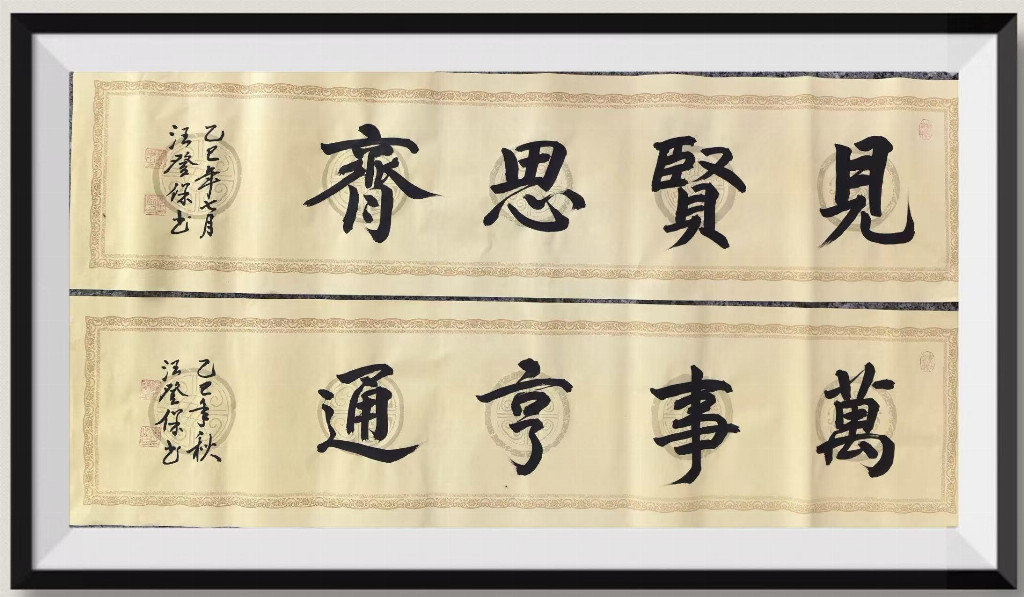 見賢思齊
乙巳年七月
汪登保书
萬事亨通
乙巳年秋
汪登保书